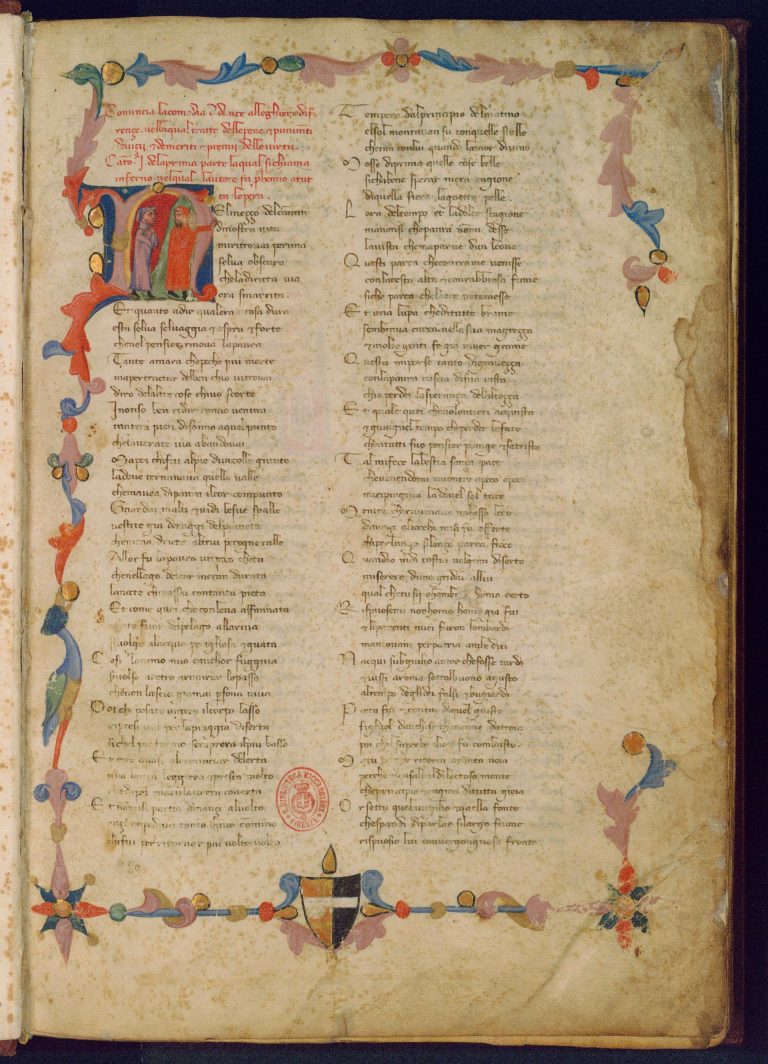 Comincia la comedia di dante alleghieri di fi
rençe nella quale tratta delle pene et punimenti
de vicii et demeriti et premii delle virtu.
Cato I dela prima parte laqual sichiama
inferno nelqual lautore fa prohemio a tut
ta lopera.
Nel meço delcamin
dinostra vita
miritrovai peruna
selva obscura
cheladiricta via
era smarrita.
Et quanto adir qualera e cosa dura
esta selva selvaggia et aspra et forte
chenel pensier rinova lapaura
Tante amara chepocho piu morte
ma pertractar delben chio vitrovai
diro delaltre cose chivo scorte
I nonso ben ridir comio ventrai
tantera pien disonno aquel punto
chelaverace via abandonai
Ma poi chifui alpie duncolle giunto
ladove terminava quella valle
chemavea dipaura ilcor compunto
Guardai inalto et vidi lesue spalle
vestite gia deraggi delpianeta
chemena dricto altrui perogne calle
Allor fu lapaura un poco cheta
chenellago delcor mera durata
lanocte chio passai contanta pieta
Et come quei che conlena affannata
uscito fuor delpelago allariva
sivolge alacqua perigliosa et guata
Cosi lanimo mio anchor fuggiva
sivolse aretro arimirar lopasso
chenon lascio giamai persona viva
Poi che posato un poco ilcorpo lasso
ripresi via perlapiaggia diserta
sichel pie fermo sempre era ilpiu basso
Et ecco quasi alcominciar delerta
una lonça leggiera et presta molto
che dipel maculato era coverta
Et nonmisi partia dinançi alvolto
ançi impediva tanto ilmio camino
chifui per ritornar piu volte volto
Tempo era dalprincipio delmatino
elsol montavan su conquelle stelle
cheran conlui quando lamor divino
Mosse diprima quelle cose belle
sichabene sperar mera cagione
diquella fiera lagaetta pelle
Lora deltempo et ladolce stagione
manonsi chepaura non mi desse
lavista chemaparve dun leone
Questi parea checontrame venisse
conlatesta alta et conrabbiosa fame
siche parea chelaere netemesse
Et una lupa cheditutte brame
sembiava carca nella sua magreçça
et molte genti fe gia viver grame
Questa miporse tanto digraveçça
conlapaura cuscia disua vista
chio perde lasperança delalteçça
Et quale quei chevolontieri acquista
et giugnel tempo cheperder loface
chentutti suo pensier piange et satrista
Tal mifece labestia sança pace
chevenendomi incontro apoco apoco
miripingeva ladovel sol tace
Mentre chirovinava inbasso loco
dinançi aliocchi misi fu offerto
chiperlungo silençio parea fioco
Quando vidi costui nelgran diserto
miserere dime gridai allui
qual chetusii od ombra od homo certo
Rispuosemi nonhomo homo gia fui
et liparenti miei furon lombardi
mantovani perpatria ambedui
Nacqui subgiulio ancor chefosse tardi
et vissi aroma sottolbuono agusto
altempo deglidei falsi et bugiardi
Poeta fui et cantai diquel giusto
figliuol danchise chevenne datroia
poi chel superbo ilion fu combusto.
Ma tu perche ritorni atanta noia
perche nonsali ildilectoso monte
cheprincipio et cagion ditutta gioia
Or setu quelvirgilio et quella fonte
chespandi diparlar silargo fiume
rispuosio lui convergognosa fronte
BIBLIOTECA RICCARDIANA
FIRENZE